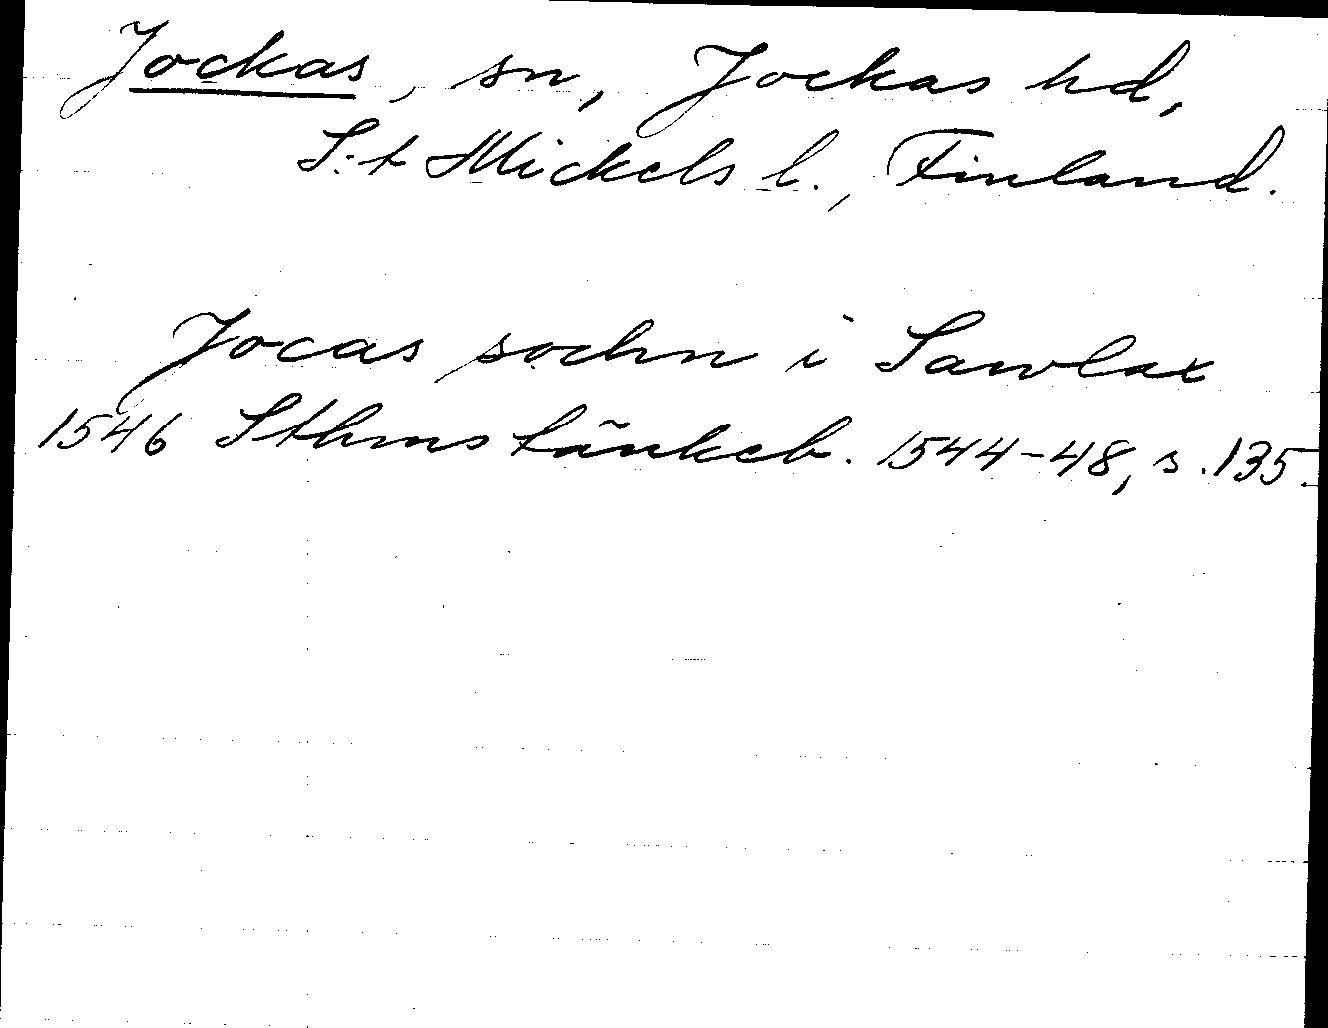 Jockas, sn, Jockas hd,
S:t Mickels l., Finland.
Jocas sochn i Sawlax
1546 Sthms tänkeb. 1544-48, s. 135.